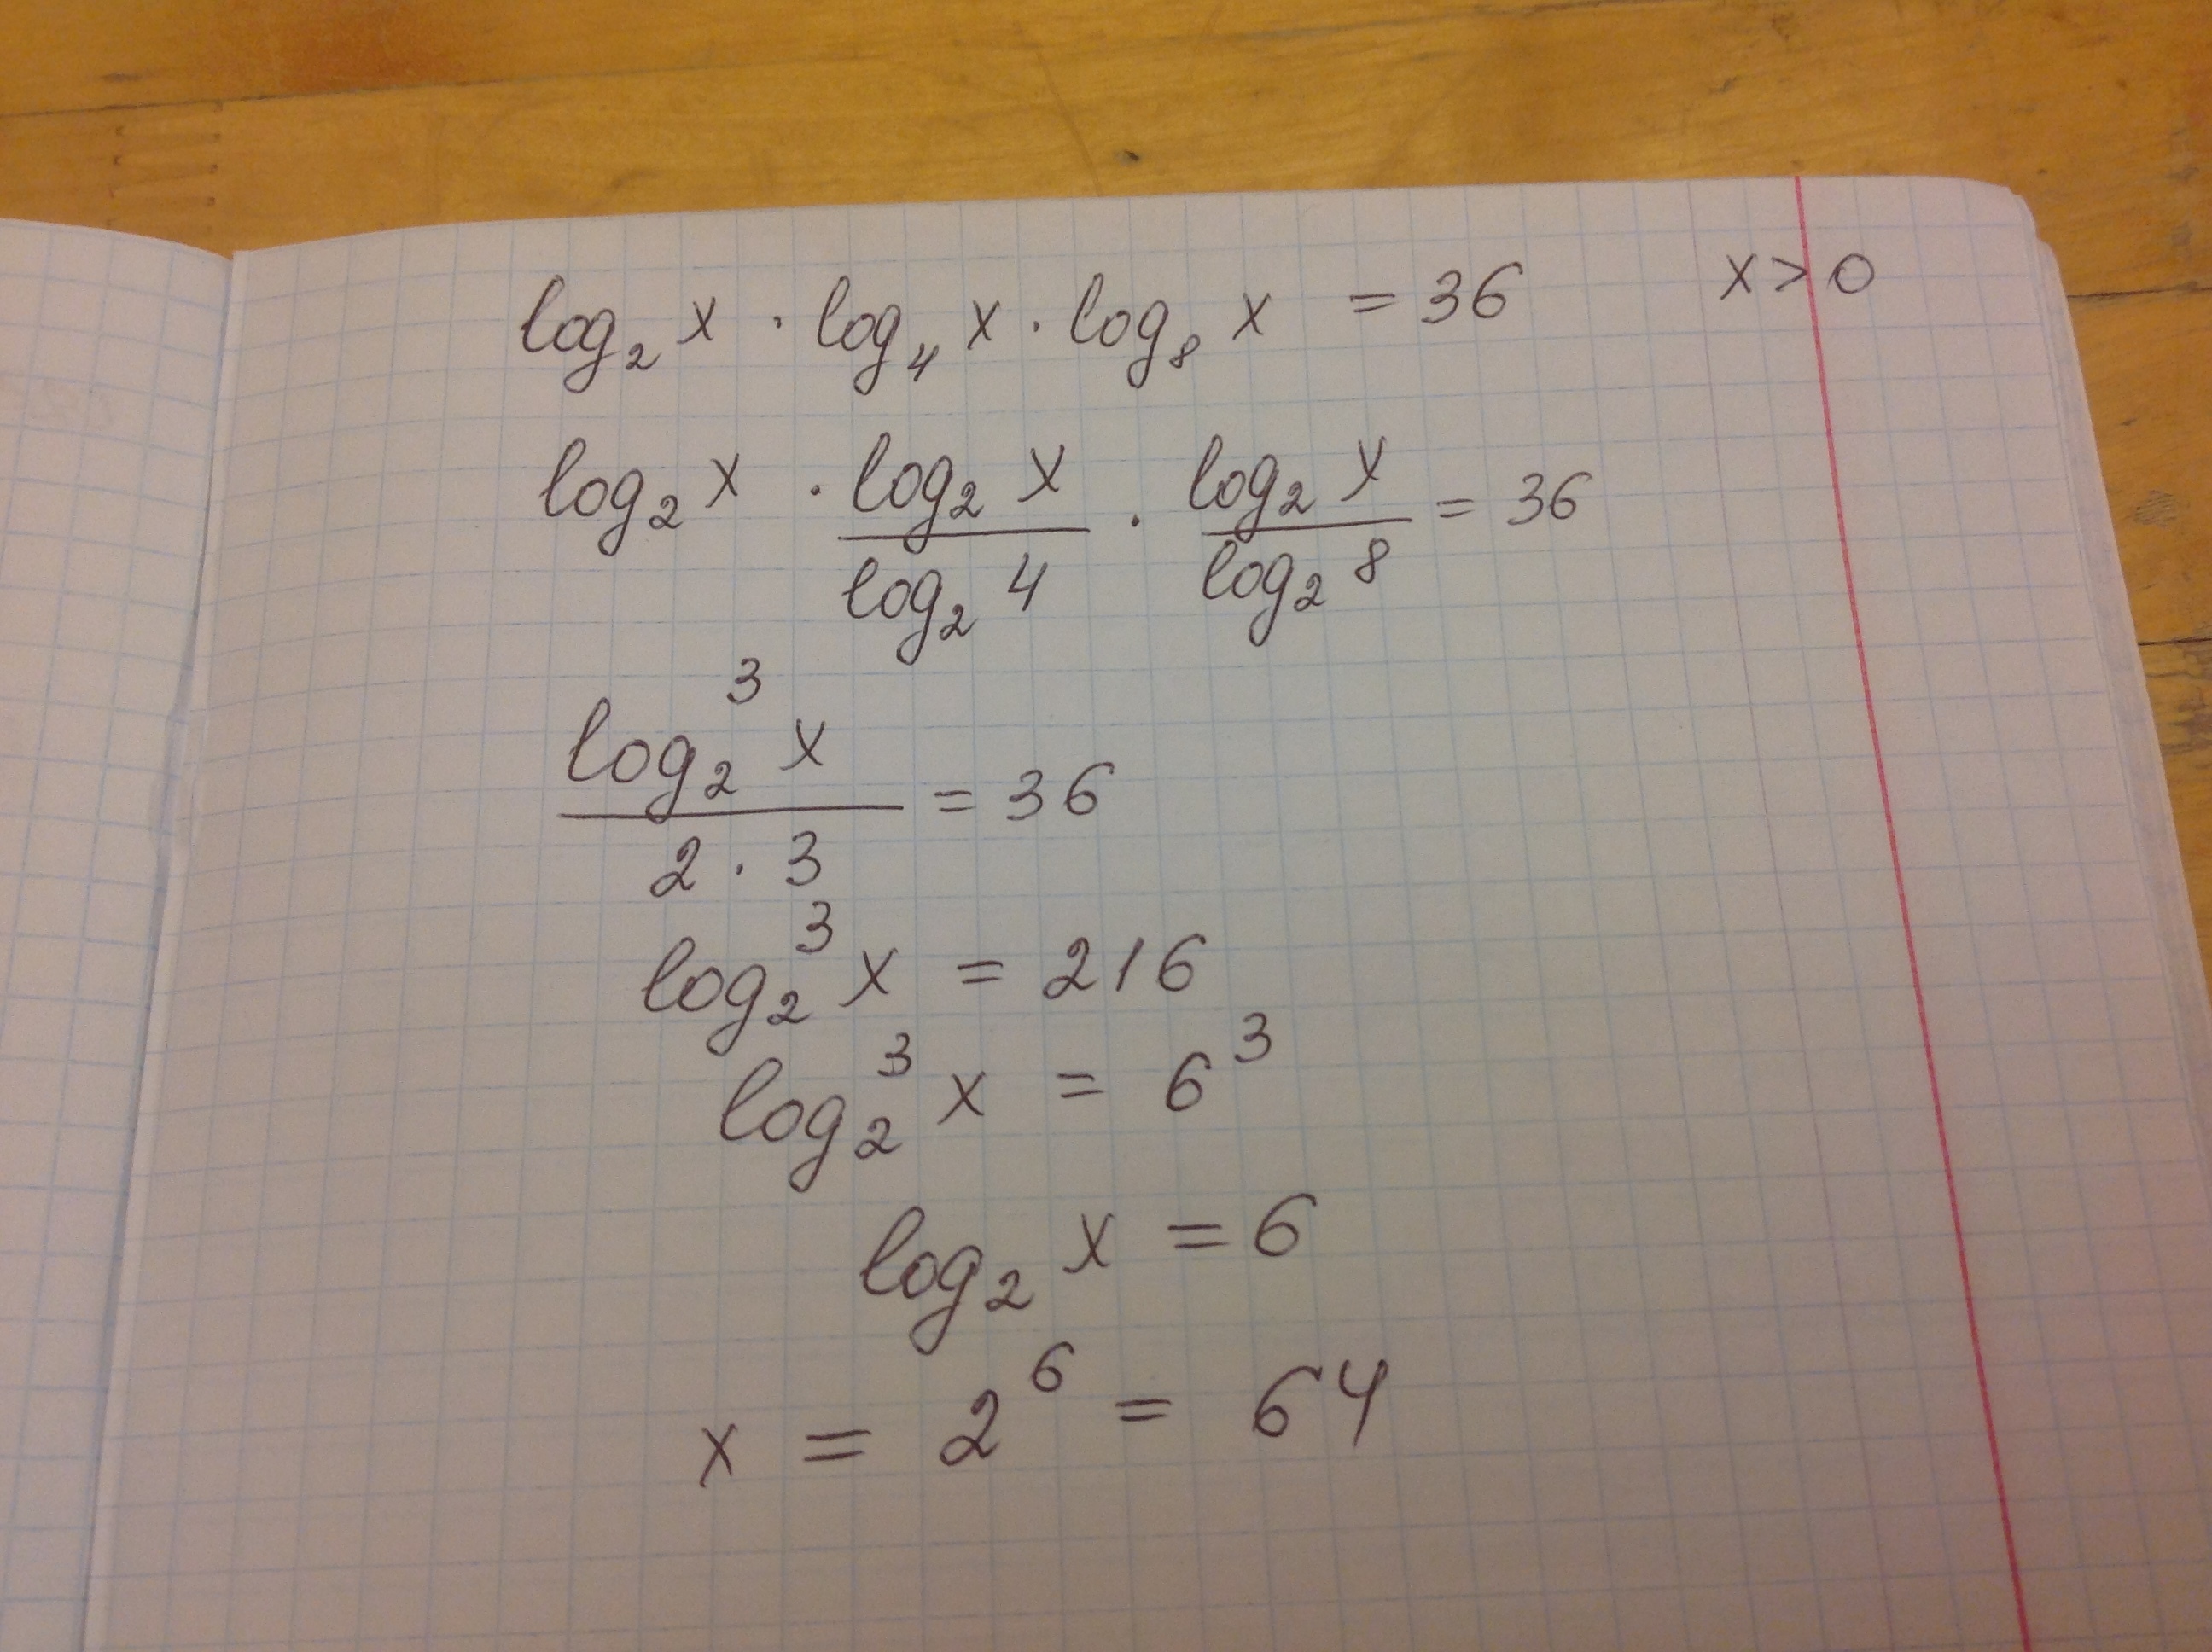 log₂ x · log₄ x · log₈ x = 36 x > 0
log₂ x · (log₂ x)/(log₂ 4) · (log₂ x)/(log₂ 8) = 36
(log₂³ x)/(2 · 3) = 36
log₂³ x = 216
log₂³ x = 6³
log₂ x = 6
x = 2⁶ = 64